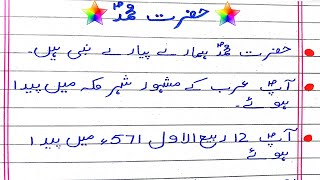 حضرت محمدؐ
حضرت محمدؐ ہمارے پیارے نبی ہیں۔
آپؐ عرب کے مشہور شہر مکہ میں پیدا
ہوئے۔
آپؐ 12 ربیع الاول 571ء میں پیدا
ہوئے